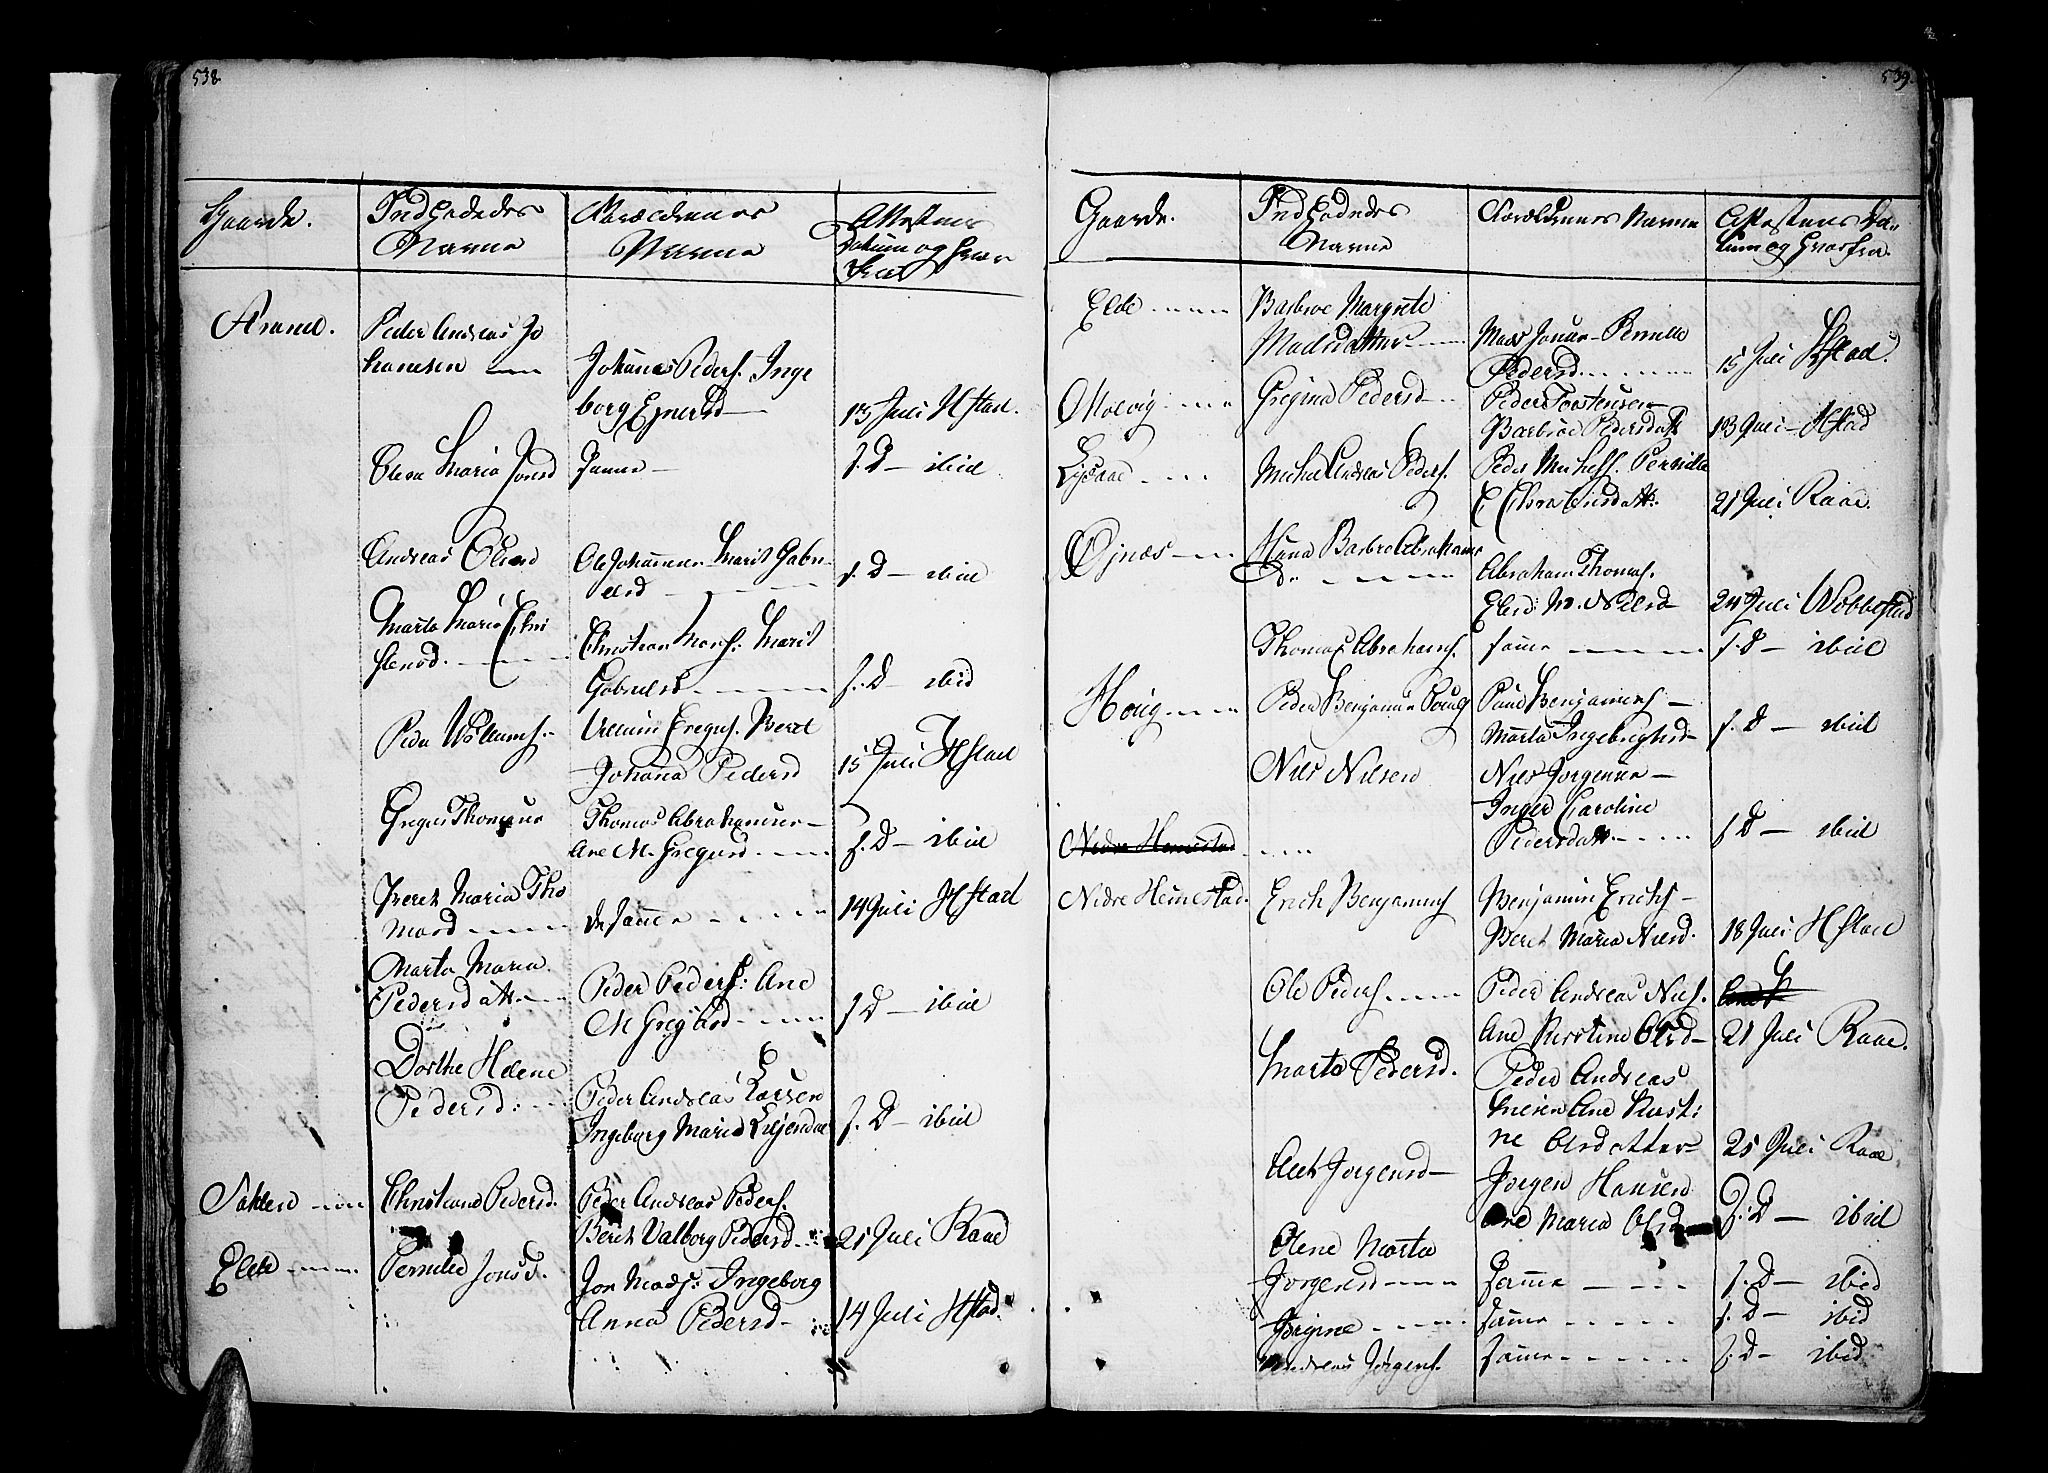 538.
Gaarde. Indpodedes Forældrenes Attestens
Navne Navne Datum og hvor
fra
Peder Andreas Jo
hannesen Johannes Peders. Inge
borg Ejnersd 13 Juli Hstad.
Olena Maria Jonsd Samme — s. D — ibid
Andreas Olsen Ole Johannesen Marit Gabri
elsd s. D — ibid
Marta Maria Chri
stensd. Christian Mons. Marit
Gabrielsd s. D — ibid
Peder Willums. Willum Gregus. Beret
Johanna Pedersd 15 Juli Hstad
Gregus Thomesen Thomas Abrahamsen —
Ane M. Gregusd s. D — ibid
Beret Maria Tho
masd de Samme 14 Juli Hstad
Marta Maria
Pedersdatt. Peder Peders: Ane
M Gregusd s. D — ibid
Dorthe Helene
Pedersd: Peder Andreas Larsen
Ingeborg Maria s. D — ibid
Christiane Pedersd. Peder Andreas Peders.
Beret Valborg Pedersd 21 Juli Raae
Elde Pernille Jonsd. Jon Mads: Ingeborg
Anna Pedersd 14 Juli Hstad.
539.
Gaarde. Indpodedes Forældrenes Navne Attestens Da-
Navne tum og hvorfra.
Elde Barbroe Margrete
Madsdatter Mads Jonsen Pernille
Pedersd. 15 Juli Hstad
Molvig Gregina Pedersd Peder Torstensen
Barbroe Pedersdatt 13 Juli — Hstad
Lysaae Michel Andreas Peders. Peder Michels. Pernille
E. 21 Juli Raae.
Øjnæs Hanna Barbro Abrahams
D. Abraham Thomas.
Elen: M. Nilsd 24 Juli Webbestad
Thomas Abrahams. samme s. D — ibid
Houg Peder Benjamin Pouls Poul Benjamins —
Marta Ingebrigtsd s. D — ibid
Nils Nilsen Nils Jorgensen —
Inger Caroline
Nedre Hemestad Pedersdatt. s. D — ibid
Nedre Hemestad. Erich Benjamins Benjamin Erichs —
Beret Maria Nilsd. 18 Juli Hstad
Ole Peders Peder Andreas Niels.
Ane Kirstine Olsd — 21 Juli Raae.
Marta Pedersd. Peder Andreas
Nielsen Ane Kirsti:
ne Olsdatter — 25 Juli Raae
Aleth Jorgensd — Jorgen Hansen
Ane Maria Olsd s. D — ibid
Olene Marta
Jorgensd Samme s. D — ibid
Jorgine Samme s. D — ibid
Andreas Jørgens. Samme s. D — ibid